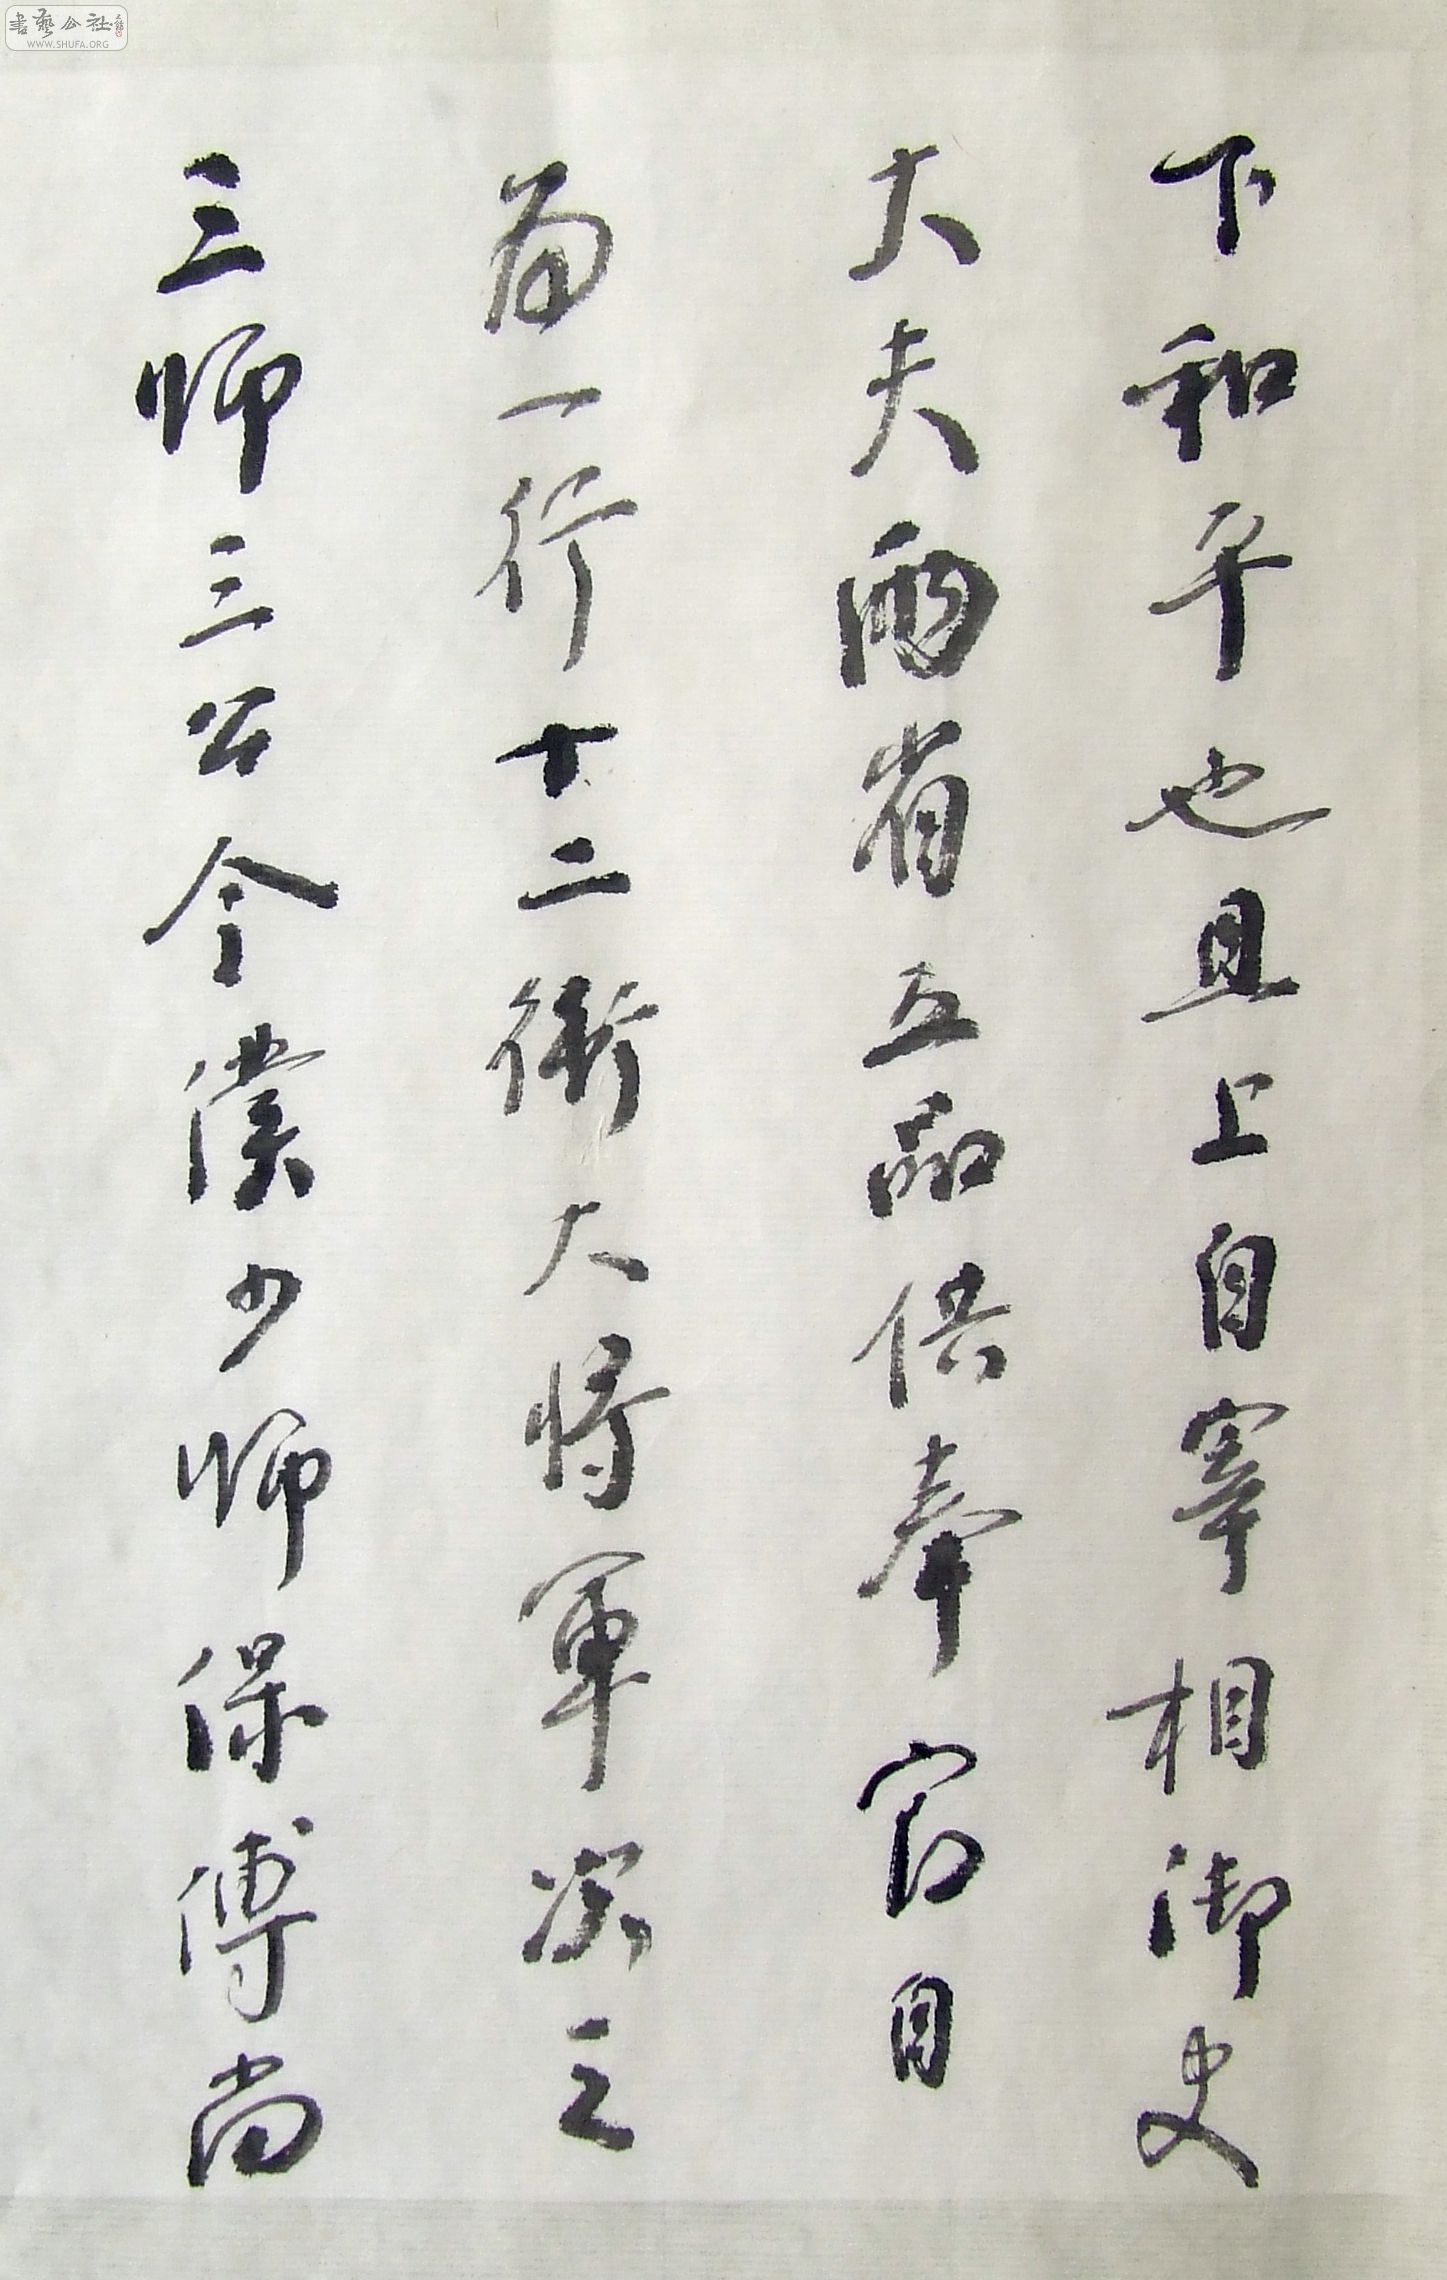 下和平也且上自宰相御史
大夫兩省五品供奉官自
為一行十二衛大將軍次之
三師三公令僕少師保傅尚
書藝公社
WWW.SHUFA.ORG